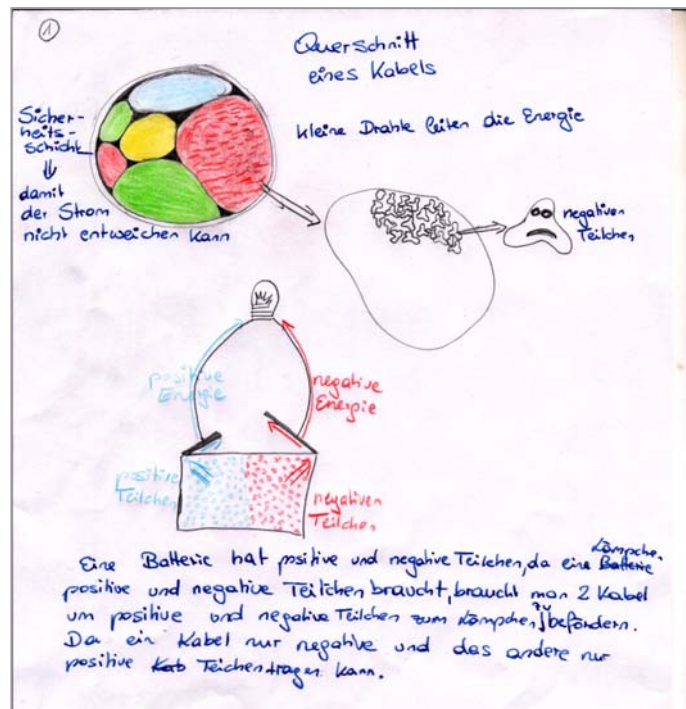 1
Querschnitt
eines Kabels
Sicher-
heits-
schicht
⇓
damit
der Strom
nicht entweichen kann
kleine Drahte leiten die Energie
negativen
Teilchen
positive
Energie
negative
Energie
positive
Teilchen
negativen
Teilchen
Eine Batterie hat positive und negative Teilchen, da eine Batterie Lämpchen
positive und negative Teilchen braucht, braucht man 2 Kabel
um positive und negative Teilchen zum Lämpchen zu befördern.
Da ein Kabel nur negative und das andere nur
positive Kab Teichen tragen kann.